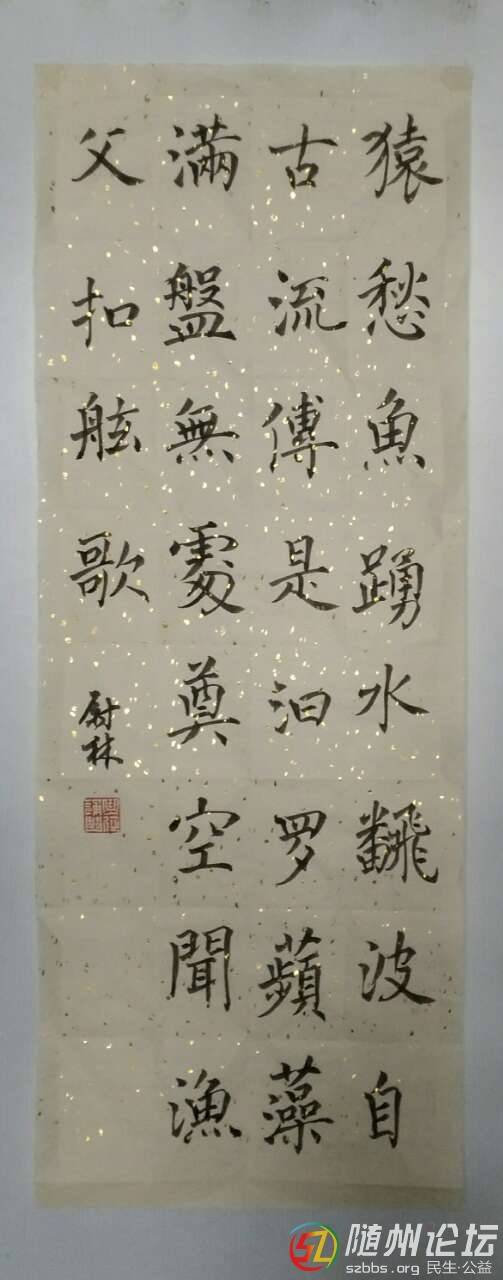 猿愁魚踴水翻波自
古流傳是汩罗蘋藻
滿盤無處奠空聞漁
父扣舷歌
尉林
随州论坛
szbbs.org 民生·公益